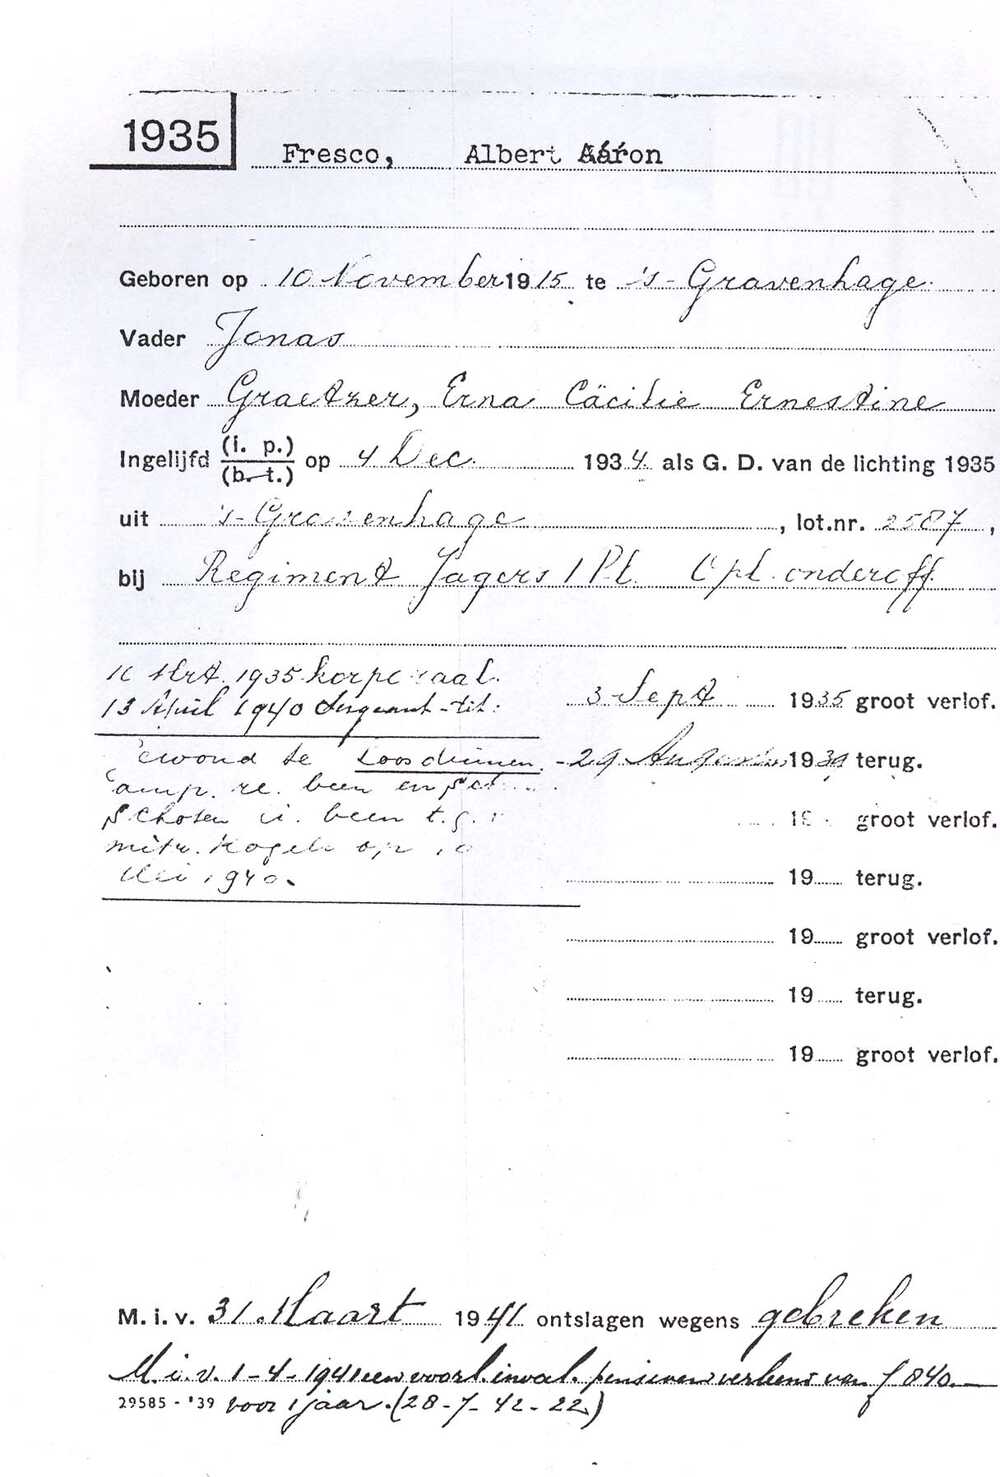 1935
Fresco, Albert Aäron
Geboren op 10 November 1915 te 's-Gravenhage.
Vader Jonas
Moeder Graetzer, Erna Cäcilie Ernestine
Ingelijfd (i. p.) (b. t.) op 4 Dec. 1934 als G. D. van de lichting 1935
uit 's-Gravenhage, lot.nr. 2587,
bij Regiment Jagers 1 Pl. Opl. onderoff.
Mrt. 1935 korporaal.
13 April 1940 Sergeant-tit.
3 Sept 1935 groot verlof.
ewond te Loosduinen.
29 Augustus 1939 terug.
amp. re. been en
schoten li. been t.g.
19 groot verlof.
mitr. kogels op 10
Mei 1940.
19 terug.
19 groot verlof.
19 terug.
19 groot verlof.
M. i. v. 31 Maart 1941 ontslagen wegens gebreken
M. i. v. 1-4-1941 een voorl. inval. pensioen verleend van f 840.—
29585 - '39 voor 1 jaar. (28-7-42-22)